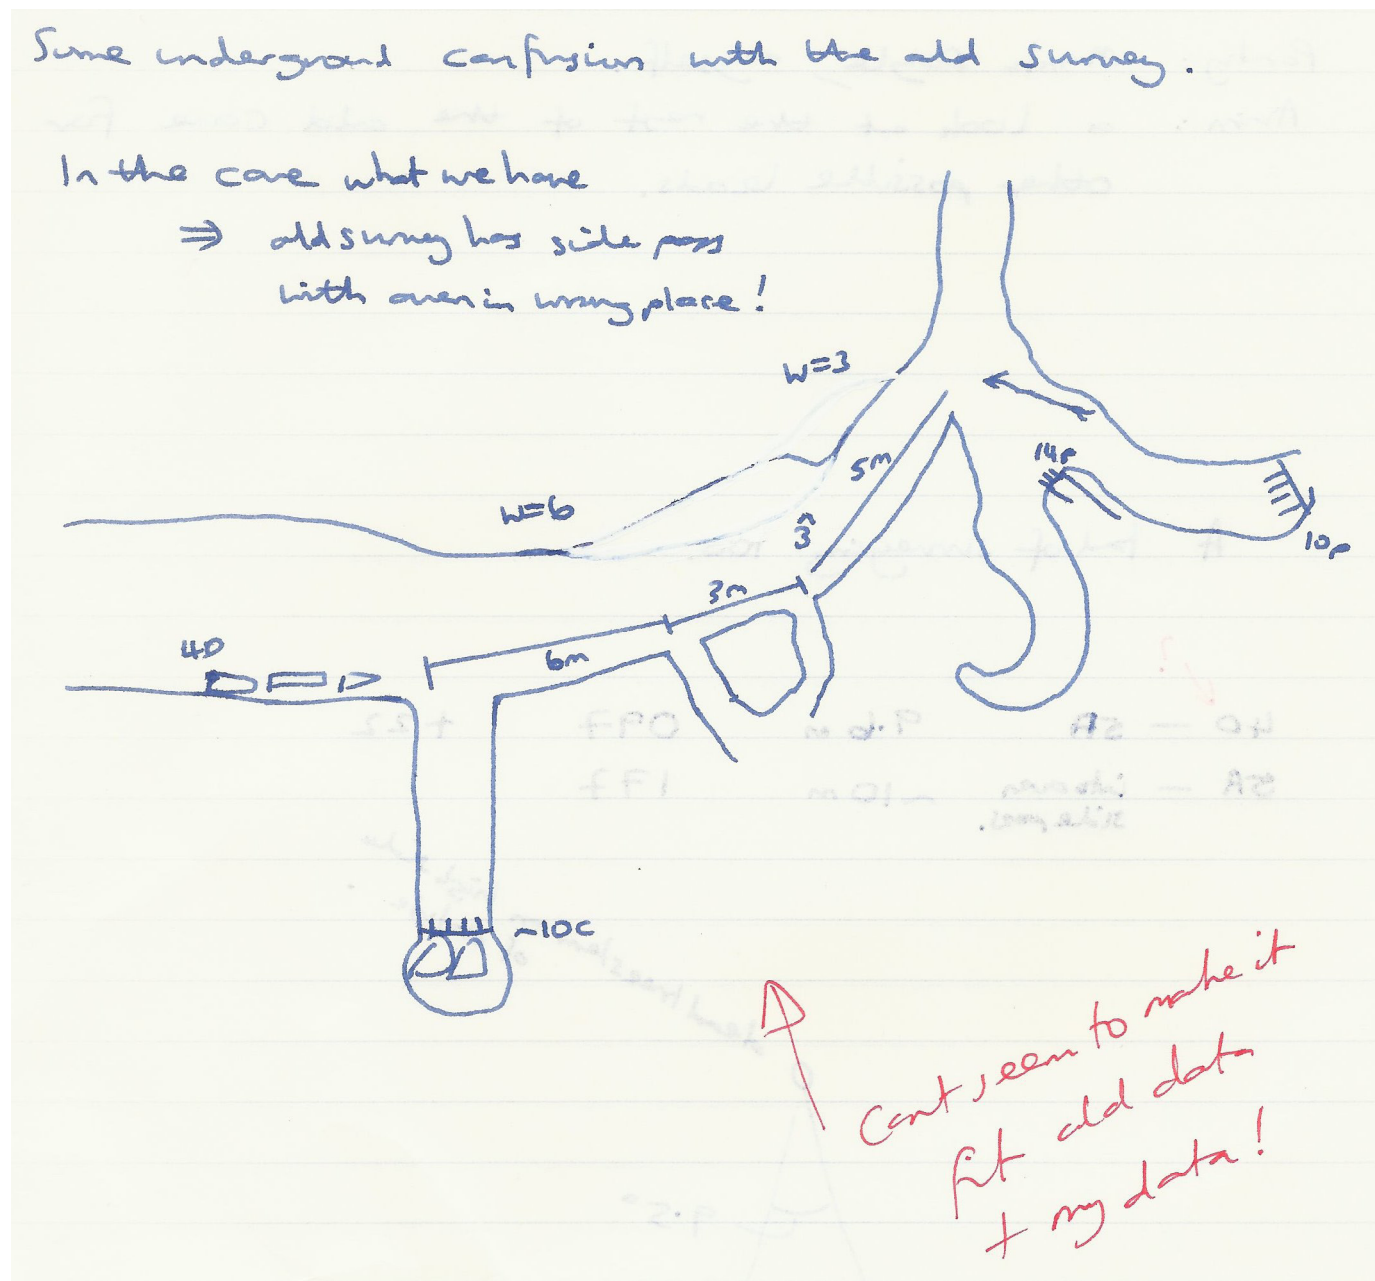 Some underground confusion with the old survey.
In the cave what we have
⇒ old survey has side pass
with aven in wrong place!
W=3
5m
14p
W=6
3
10p
3m
40
6m
~10c
Cant seem to make it
fit old data
+ my data!